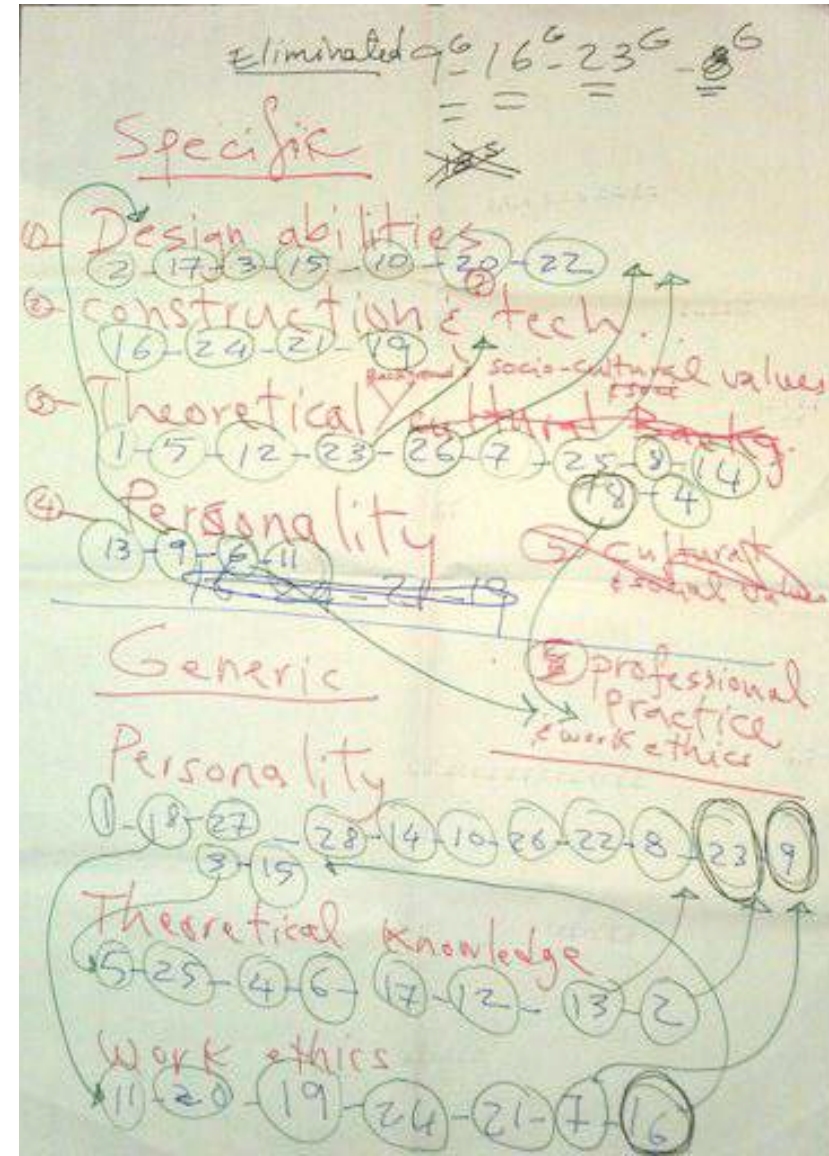 Eliminated 9G - 16G - 23G - 8G
Specific
① Design abilities
2 - 17 - 3 - 15 - 10 - 20 - 22
② construction & tech.
16 - 24 - 21 - 19
Background & socio-cultural values
③ Theoretical Cultural
1 - 5 - 12 - 23 - 26 - 7 - 25 - 8 - 14
18 - 4
④ Personality
13 - 9 - 6 - 11
5 cultural
& social values
16 - 24 - 21 - 19
Generic
5 professional
practice
& work ethics
Personality
1 - 18 - 27 - 28 - 14 - 10 - 26 - 22 - 8 - 23 - 9
3 - 15
Theoretical Knowledge
5 - 25 - 4 - 6 - 17 - 12 - 13 - 2
Work ethics
11 - 20 - 19 - 24 - 21 - 7 - 16